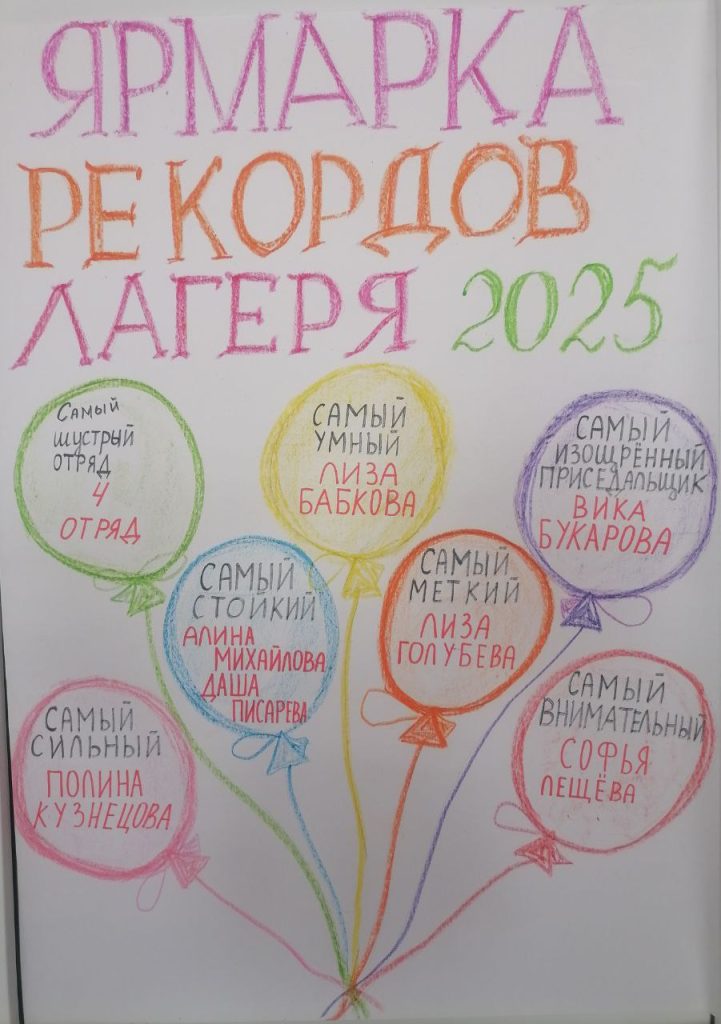 ЯРМАРКА
РЕКОРДОВ
ЛАГЕРЯ 2025
Самый
шустрый
отряд
4
отряд
САМЫЙ
УМНЫЙ
ЛИЗА
БАБКОВА
САМЫЙ
ИЗОЩРЁННЫЙ
ПРИСЕДАЛЬЩИК
ВИКА
БУКАРОВА
САМЫЙ
СТОЙКИЙ
АЛИНА
МИХАЙЛОВА
ДАША
ПИСАРЕВА
САМЫЙ
МЕТКИЙ
ЛИЗА
ГОЛУБЕВА
САМЫЙ
СИЛЬНЫЙ
ПОЛИНА
КУЗНЕЦОВА
САМЫЙ
ВНИМАТЕЛЬНЫЙ
СОФЬЯ
ЛЕЩЁВА